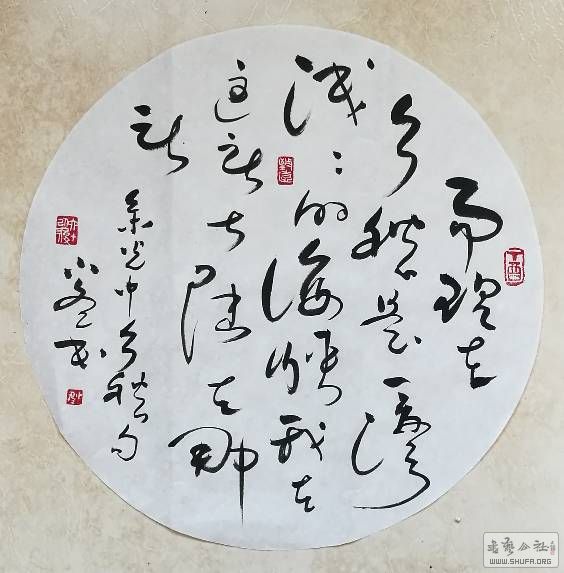 而现在
乡愁是一湾
浅浅的海峡我在
这头大陆在那
头
余光中乡愁句
小书
书艺公社
WWW.SHUFA.ORG